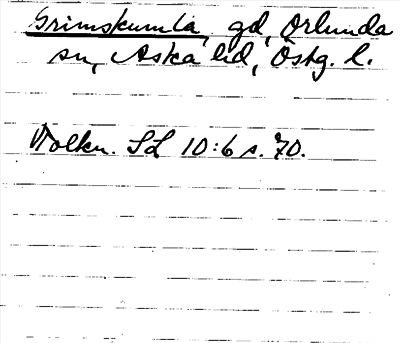 Grimskumla, gd, Orlunda
sn, Aska hd, Östg. l.
Tolkn. SL 10:6 s. 70.